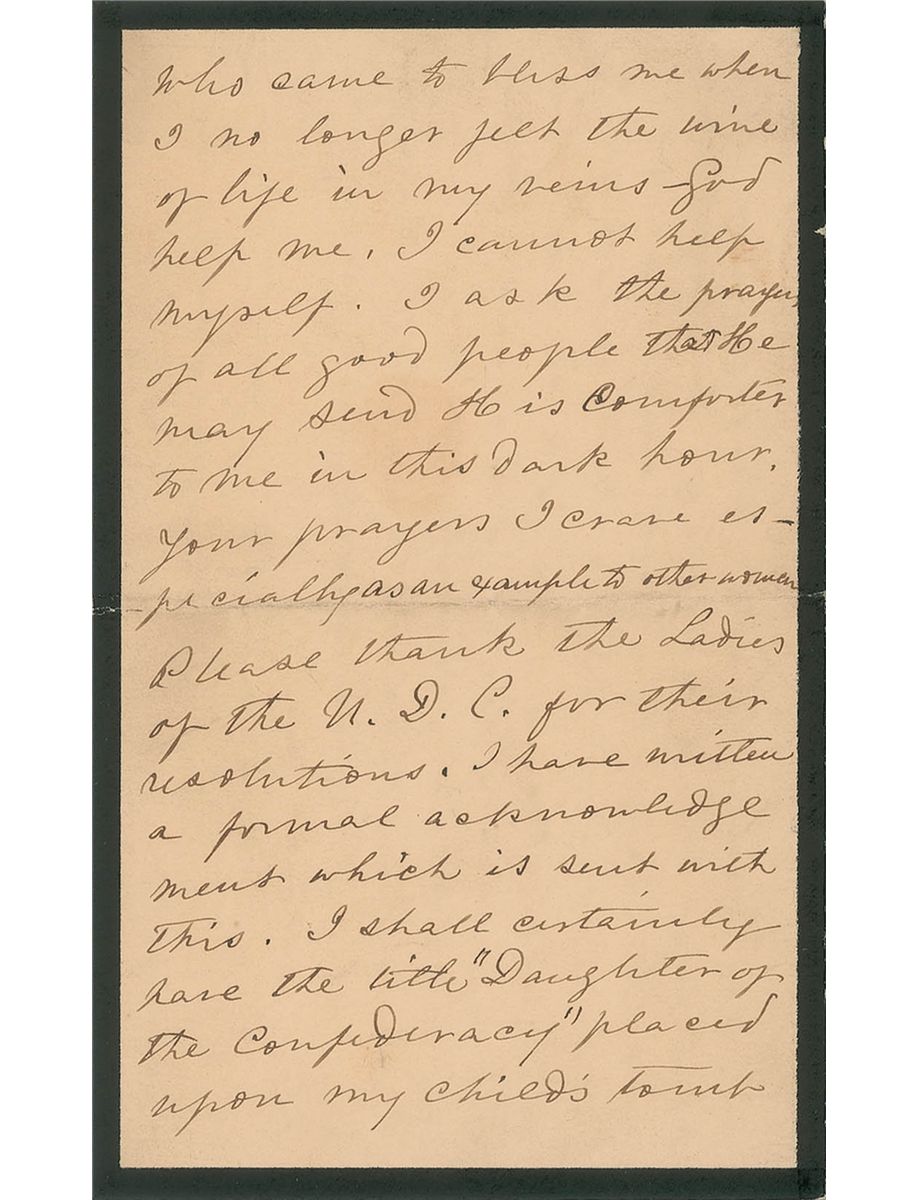 who came to bless me when
I no longer felt the wine
of life in my veins - God
help me. I cannot help
myself. I ask the prayers
of all good people that He
may send His Comforter
to me in this dark hour.
Your prayers I crave es-
pecially as an example to other women
Please thank the Ladies
of the U. D. C. for their
resolutions. I have written
a formal acknowledge
ment which is sent with
this. I shall certainly
have the title "Daughter of
the Confederacy" placed
upon my child's tomb